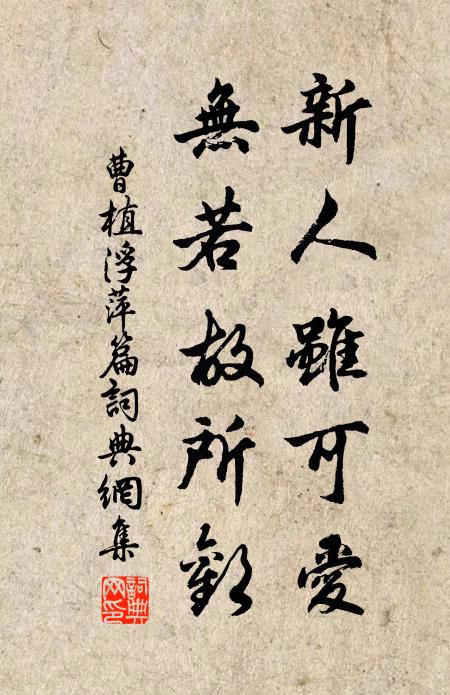 新人雖可愛
無若故所歡
曹植浮萍篇詞典網集
詞典
网印